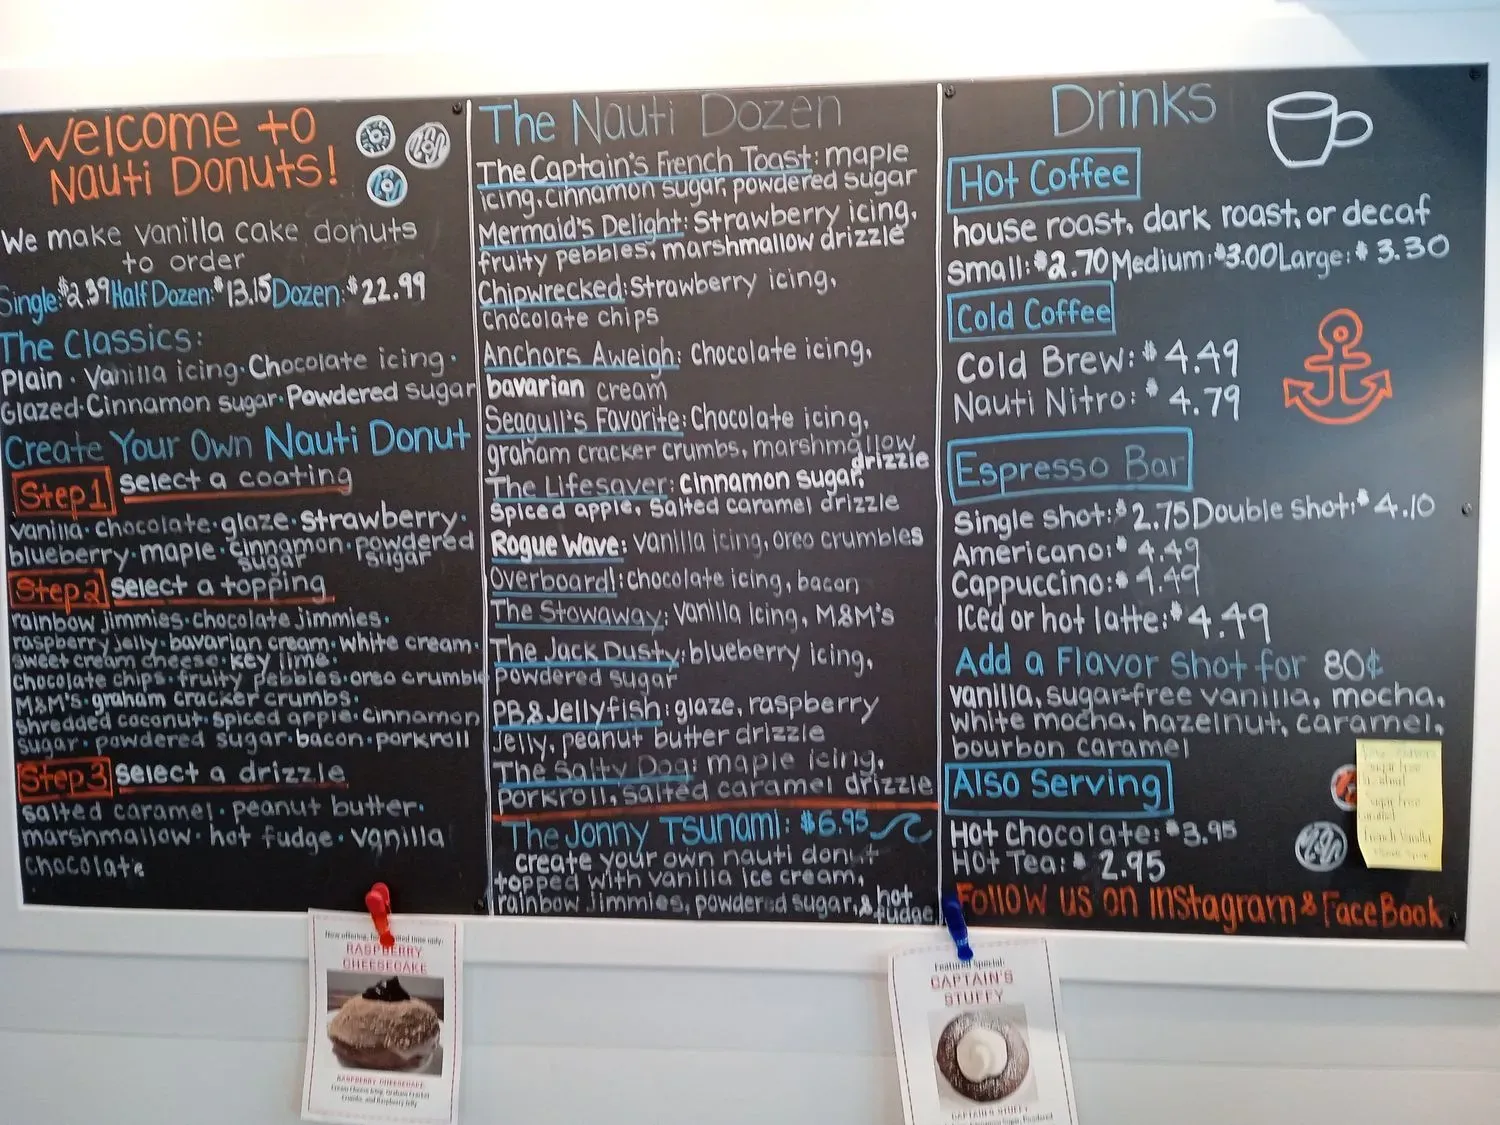 Welcome to
Nauti Donuts!
We make vanilla cake donuts
to order
Single:$2.39 Half Dozen:$13.15 Dozen:$22.99
The Classics:
Plain · Vanilla icing · Chocolate icing ·
Glazed · Cinnamon sugar · Powdered sugar
Create Your Own Nauti Donut
Step 1 select a coating
vanilla · chocolate · glaze · strawberry ·
blueberry · maple · cinnamon sugar · powdered sugar
Step 2 select a topping
rainbow jimmies · chocolate jimmies ·
raspberry jelly · bavarian cream · white cream ·
sweet cream cheese · key lime ·
chocolate chips · fruity pebbles · oreo crumble
M&M's · graham cracker crumbs ·
shredded coconut · spiced apple · cinnamon
sugar · powdered sugar · bacon · porkroll
Step 3 select a drizzle
salted caramel · peanut butter ·
marshmallow · hot fudge · vanilla
chocolate
The Nauti Dozen
The Captain's French Toast: maple
icing, cinnamon sugar, powdered sugar
Mermaid's Delight: Strawberry icing,
fruity pebbles, marshmallow drizzle
Chipwrecked: Strawberry icing,
Chocolate chips
Anchors Aweigh: Chocolate icing,
bavarian cream
Seagull's Favorite: Chocolate icing,
graham cracker crumbs, marshmallow
drizzle
The Lifesaver: Cinnamon sugar,
Spiced apple, Salted caramel drizzle
Rogue Wave: Vanilla icing, oreo crumbles
Overboard!: chocolate icing, bacon
The Stowaway: Vanilla icing, M&M's
The Jack Dusty: blueberry icing,
powdered sugar
PB&Jellyfish: glaze, raspberry
Jelly, peanut butter drizzle
The Salty Dog: maple icing,
porkroll, salted caramel drizzle
The Jonny Tsunami: $6.95
create your own nauti donut
topped with vanilla ice cream,
rainbow jimmies, powdered sugar, & hot
fudge
Drinks
Hot Coffee
house roast, dark roast, or decaf
Small: $2.70 Medium: $3.00 Large: $3.30
Cold Coffee
Cold Brew: $4.49
Nauti Nitro: $4.79
Espresso Bar
Single shot: $2.75 Double shot: $4.10
Americano: $4.49
Cappuccino: $4.49
Iced or hot latte: $4.49
Add a Flavor Shot for 80¢
vanilla, sugar-free vanilla, mocha,
white mocha, hazelnut, caramel,
bourbon caramel
Also Serving
Hot Chocolate: $3.95
Hot Tea: $2.95
Follow us on Instagram & FaceBook
Sugar free
Sugar free
Caramel
French Vanilla
Now offering, for limited time only:
RASPBERRY
CHEESECAKE
RASPBERRY CHEESECAKE
Cream Cheese Icing, Graham Cracker
Crumbs, and Raspberry Jelly
Featured Special:
CAPTAIN'S
STUFFY
CAPTAIN'S STUFFY